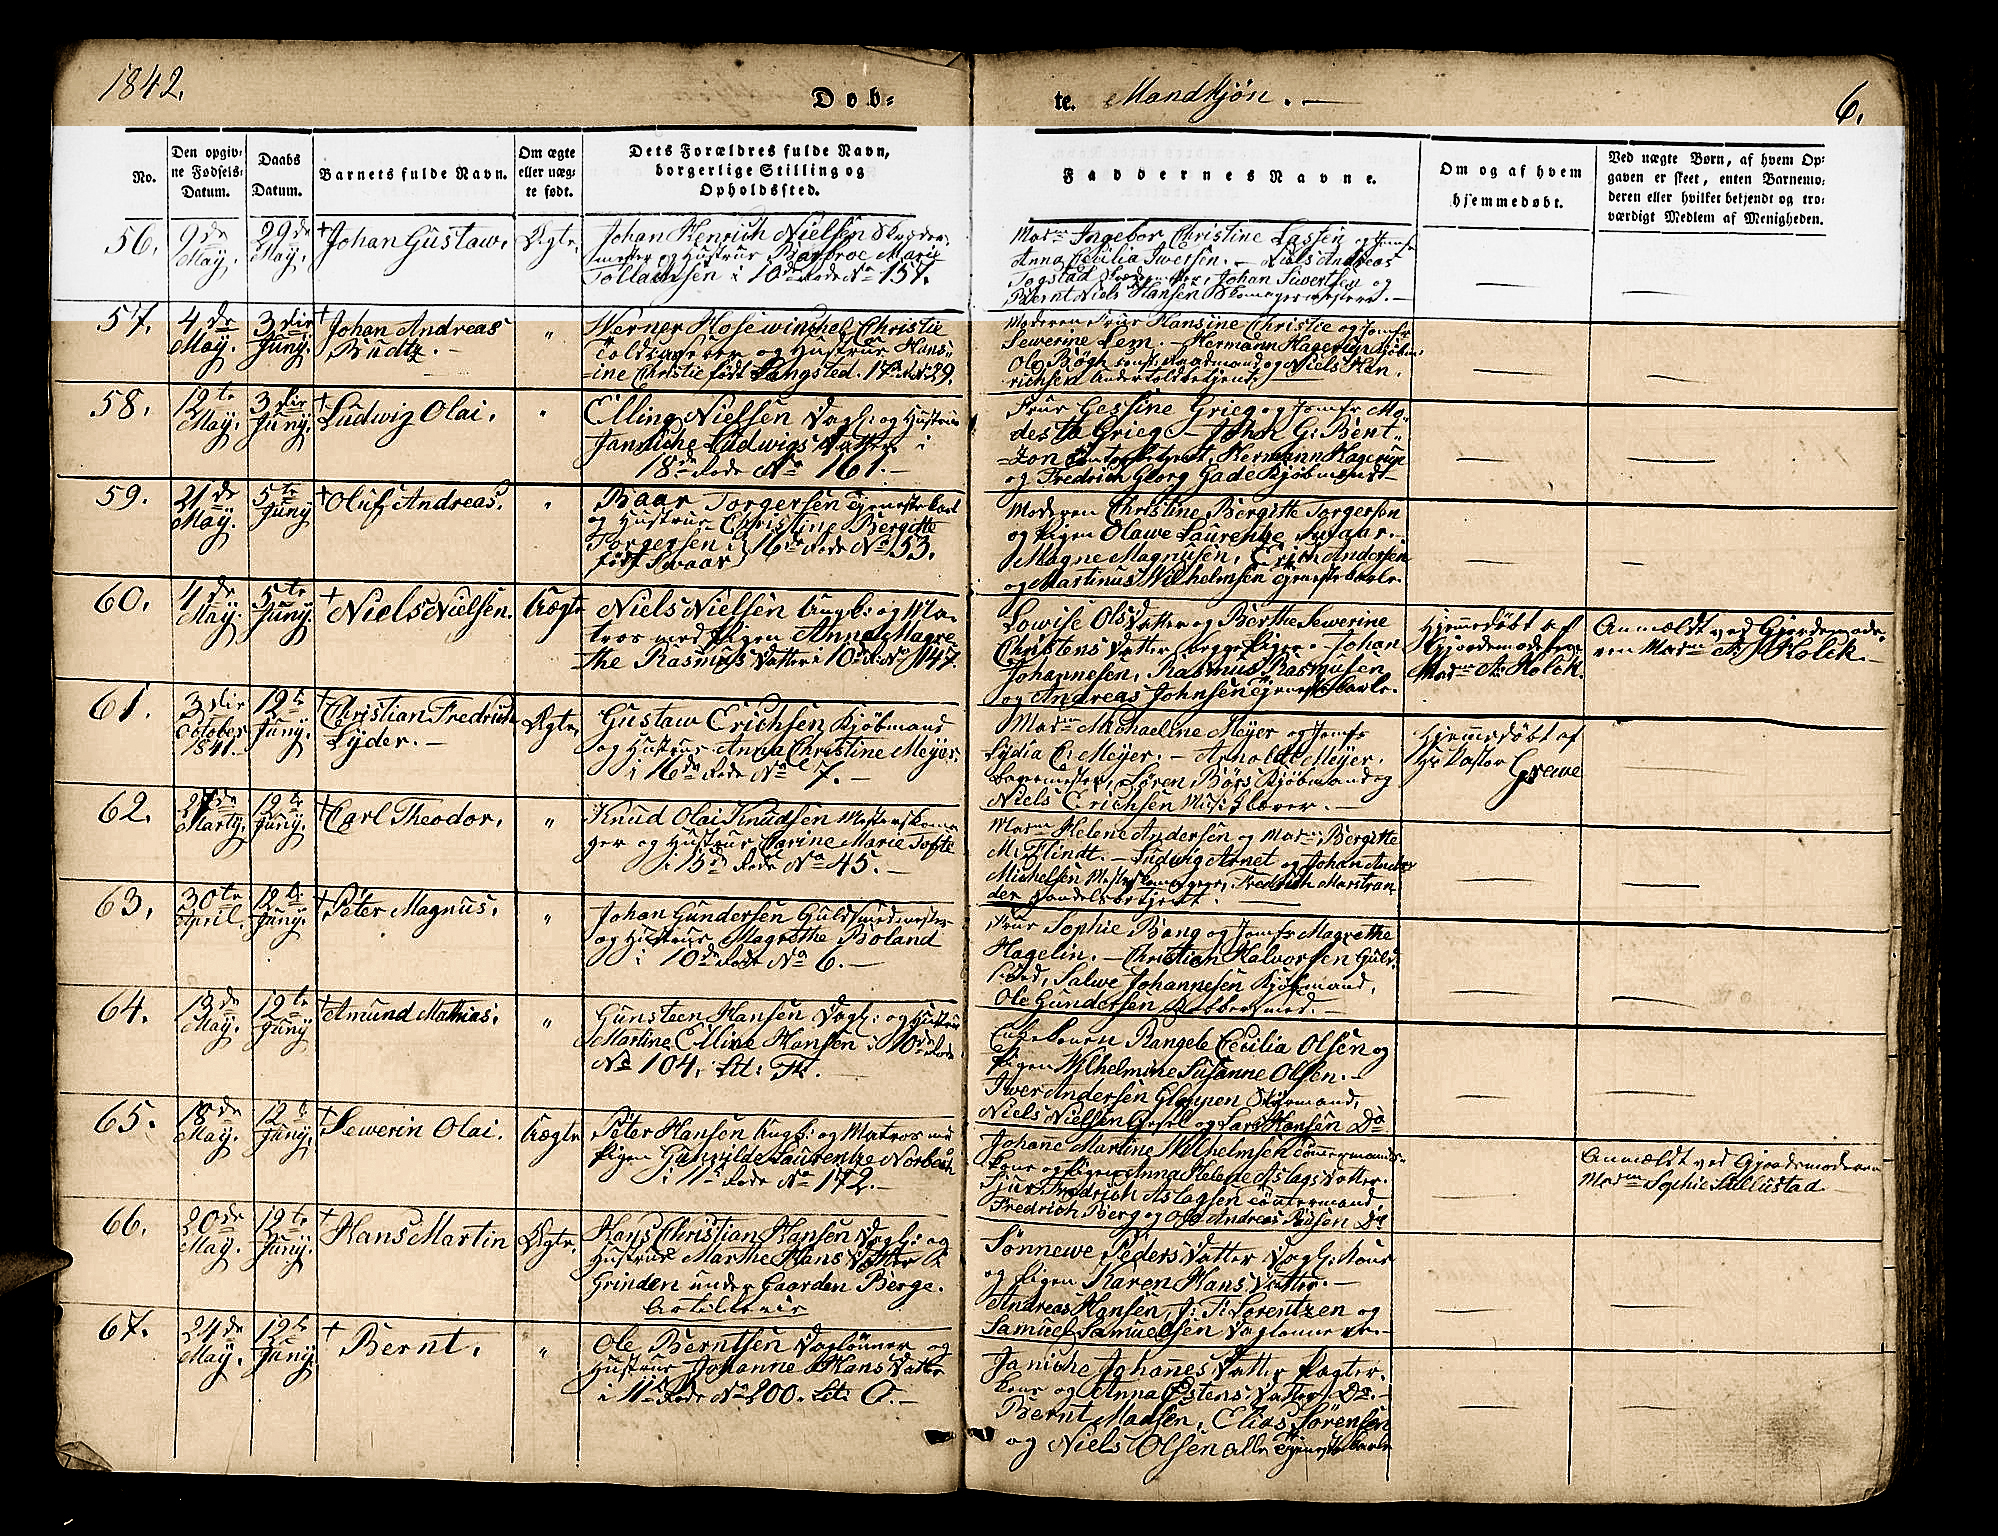 1842.
Døb-
te. Mandkjøn. —
6.
No.
Den opgiv-
ne Fødsels-
Datum.
Daabs
Datum.
Barnets fulde Navn.
Om ægte
eller uæg-
te født.
Dets Forældres fulde Navn,
borgerlige Stilling og
Opholdssted.
Faddernes Navne.
Om og af hvem
hjemmedøbt.
Ved uægte Børn, af hvem Op-
gaven er skeet, enten Barnemo-
deren eller hvilket bekjendt og tro-
værdigt Medlem af Menigheden.
56.
9de
May.
29de
May.
Johan Gustaw.
Ægte.
Johan Henrich Nielsen Skræder-
mester og Hustrue Barbroe Marie
Tollamsen i 10de Rode No 157.
Madm Ingebor Christine Lasten og Jomfr
Anna Cecilia Iwersen. — Niels Andreas
Togstad Johan Siwertsen og
Berent Niels Hansen Skomagermestere. —
57.
4de
May.
3die
Juny.
Johan Andreas
Budtz. —
"
Werner Hosewinchel Christie
Toldskriver og Hustrue Hans-
ine Christie født Langsted. 17de No 29.
Moderen Frue Hansine Christie og Jomfr
Sewerine Lem. — Hermann Hagerup Kjøbm:
Ole Bøgh const. Raadmand og Niels Hen-
richsen Undertoldbetjent. —
58.
12te
May.
3die
Juny.
Ludwig Olai.
"
Elling Nielsen Dagl: og Hustrue
Janniche Ludwigs Datter i
18de Rode No 161. —
Frue Gessine Grieg og Jomfr Mo-
desta Grieg — John G: Bent-
zon Hermann Hagerup
og Fredrich Georg Gade Kjøbmænd —
59.
21de
May.
5te
Juny
Oluf Andreas.
"
Baar Torgersen Tjenestekarl
og Hustrue Christine Bergitte
Torgersen i 16de Rode No 53.
født Swaar
Moderen Christine Bergitte Torgersen
og Pigen Olawe Laurentze Swaar. —
Magne Magnusen, Erich Andersen
og Martinus Wilhelmsen Tjenestekarle.
60.
4de
May.
5te
Juny.
Niels Nielsen.
Uægte
Niels Nielsen Ungk: og Ma-
tros med Pigen Anna Magre
the Rasmus Datter i 10de R: No 147.
Lowise Ols Datter og Berthe Sewerine
Christens Datter, begge Piger. — Johan
Johannesen, Rasmus Rasmusen
og Andreas Johnsen Tjenestekarle.
Hjemmedøbt af
Gjordemoderen
Madm A: Holck.
Anmældt ved Gjordemode-
ren Madm A: Holck. —
61.
3die
October
1841.
12te
Juny.
Christian Fredrich
Lyder. —
Ægte.
Gustaw Erichsen Kjøbmand
og Hustrue Anna Christine Meyer.
i 16de Rode No 7. —
Madm Michaeline Meyer og Jomfr
Lydia C: Meyer. — Arnoldt Meyer.
Bagermester, Søren Børs Kjøbmand og
Niels Erichsen Musiklærer. —
Hjemmedøbt af
Hr Pastor Grewe
62.
27de
Marty.
12te
Juny.
Carl Theodor.
"
Knud Olai Knudsen Mesterskoma-
ger og Hustrue Carine Marie Tofte
i 15de Rode No 45. —
Madm Helene Andersen og Madm Bergitte
M: Flindt. — Ludwig Arnet og Johan Andreas
Michelsen Mesterskomagere, Fredrich Marstran-
der Handelsbetjent. —
63.
30te
April.
12te
Juny.
Peter Magnus.
"
Johan Gundersen Guldsmedmester
og Hustrue Magrethe Boland
i 10de Rode No 6. —
Frue Sophie Bang og Jomfr Magrethe
Hagelin. — Christian Halvorsen Guld-
smed, Salwe Johannesen Kjøbmand,
Ole Gundersen Kobbersmed. —
64.
13de
May.
12te
Juny
Amund Mathias.
"
Gunsteen Hansen Dagl: og Hustrue
Martine Elline Hansen i 10de Rode
No 104. Lit: A. —
Enkekonen Rangele Cecilia Olsen og
Pigen Wilhelmine Susanne Olsen. —
Iwer Andersen Gloppen Styrmand,
Niels Nielsen og Lars Hansen Do
65.
18de
May.
12te
Juny.
Sewerin Olai.
Uægte
Peter Hansen Ungk: og Matros med
Pigen Gunnilde Laurentze Norbech
i 11te Rode No 172. —
Johane Martine Wilhelmsen Tømmermands-
kone og Pigen Anna Helene Aslags Datter.
Sjur Fredrich Aslagsen Tømmermand
Fredrich Berg og Ole Andreas Poulsen Do
Anmældt ved Gjordemoderen
Madm Sophie Sællestad
66.
20de
May.
12te
Juny.
Hans Martin
Ægte.
Hans Christian Hansen Dagl: og
Hustrue Marthe Hans Datter i
Grinden under Gaarden Berge.
Artilleriet
Sønnewe Peders Datter Dagl: Kone
og Pigen Karen Hans Datter. —
Andreas Hansen, J: F: Lorentzen og
Samuel Samuelsen Daglønnere. —
67.
24de
May.
12te
Juny
Bernt.
"
Ole Berntsen Daglønner og
Hustrue Johanne Hans Datter
i 11te Rode No 200. Lit: O. —
Janiche Johanes Datter
Kone og Anna Ostens Datter Do. —
Bernt Madsen, Elias Sørensen
og Niels Olsen alle Tjenestekarle